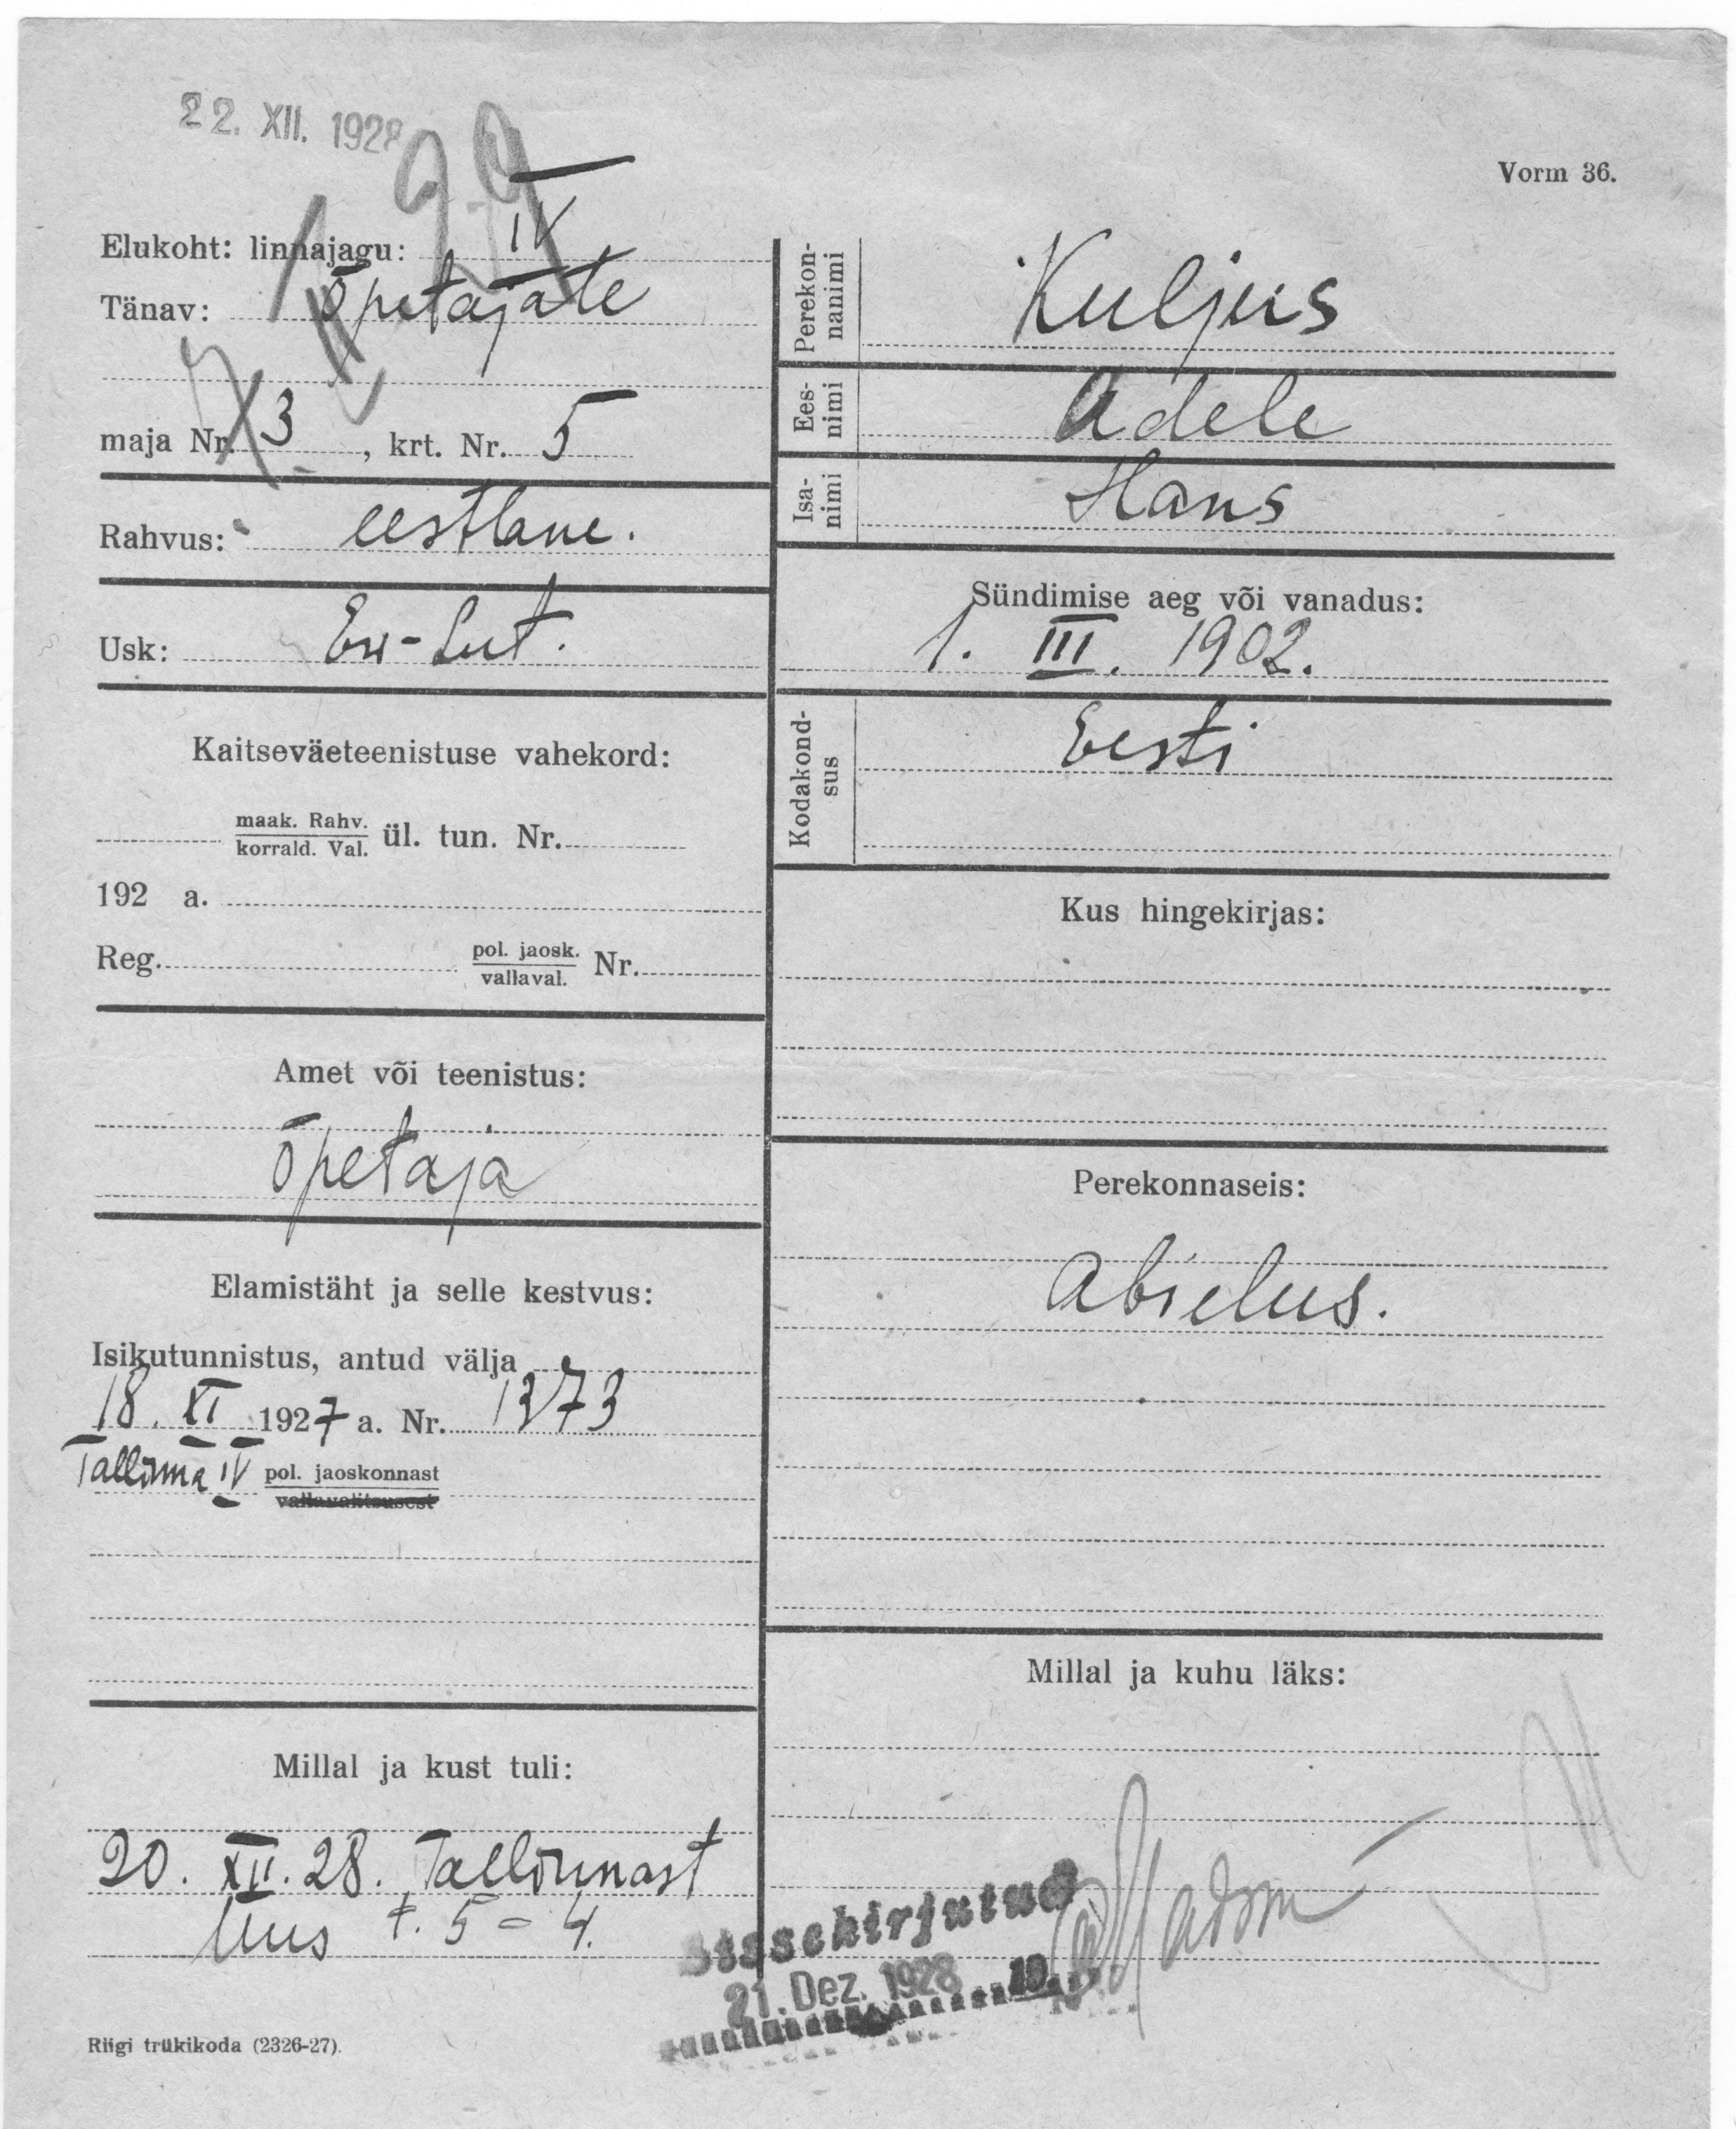 22. XII. 1928
Vorm 36.
Elukoht: linnajagu: IV
Tänav: Õpetajate
maja Nr. 3, krt. Nr. 5
Rahvus: eestlane.
Usk: Ew-Lut.
Kaitseväeteenistuse vahekord:
maak. Rahv.
korrald. Val. ül. tun. Nr.
192 a.
Reg. pol. jaosk.
vallaval. Nr.
Amet või teenistus:
õpetaja
Elamistäht ja selle kestvus:
Isikutunnistus, antud välja
18. XI 1927 a. Nr. 1373
Tallinna IV pol. jaoskonnast
vallavalitsusest
Millal ja kust tuli:
20. XII. 28. Tallinnast
Uus t. 5 - 4.
Riigi trükikoda (2326-27).
Perekonnanimi
Kuljus
Eesnimi
Adele
Isanimi
Hans
Sündimise aeg või vanadus:
1. III. 1902.
Kodakondsus
Eesti
Kus hingekirjas:
Perekonnaseis:
Abielus.
Millal ja kuhu läks:
Sissekirjutud
21. Dez. 1928 19